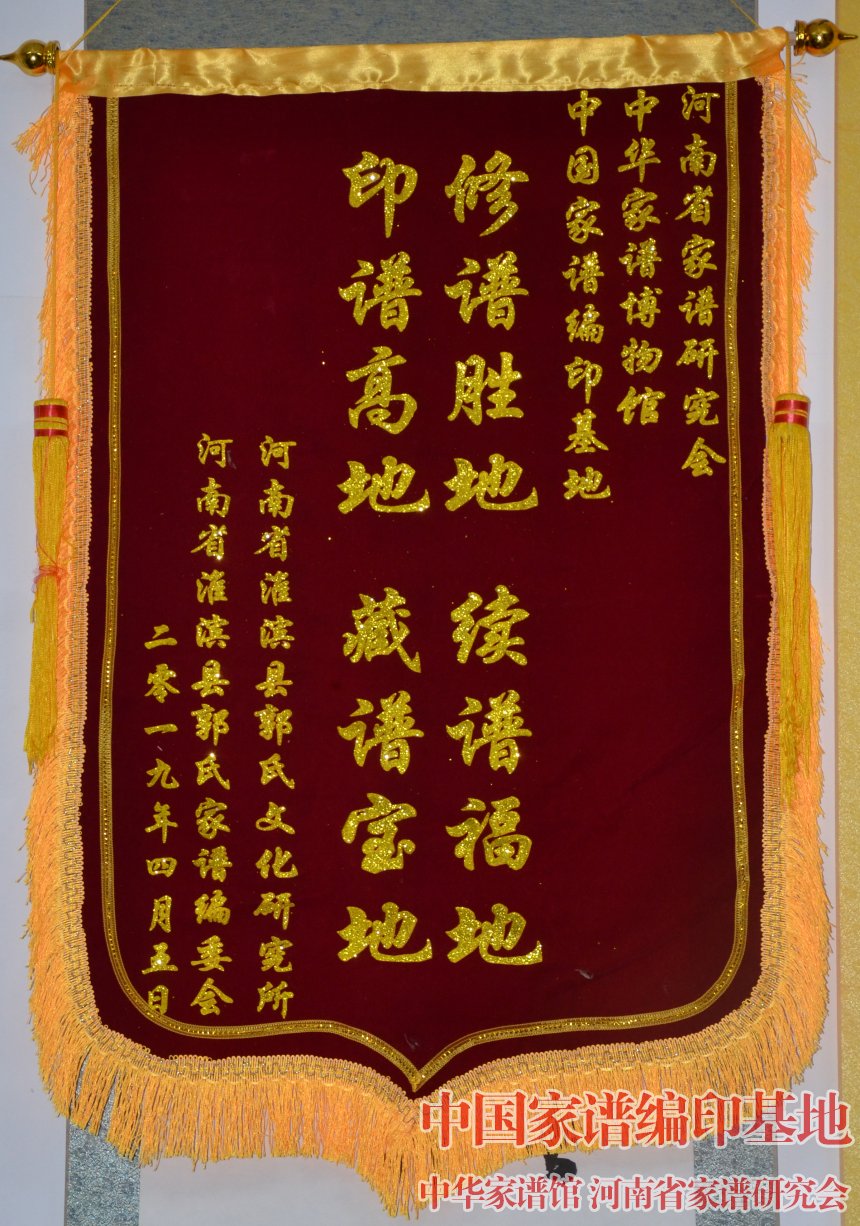 河南省家谱研究会
中华家谱博物馆
中国家谱编印基地
修谱胜地 续谱福地
印谱高地 藏谱宝地
河南省淮滨县郭氏文化研究所
河南省淮滨县郭氏家谱编委会
二零一九年四月五日
中国家谱编印基地
中华家谱馆 河南省家谱研究会